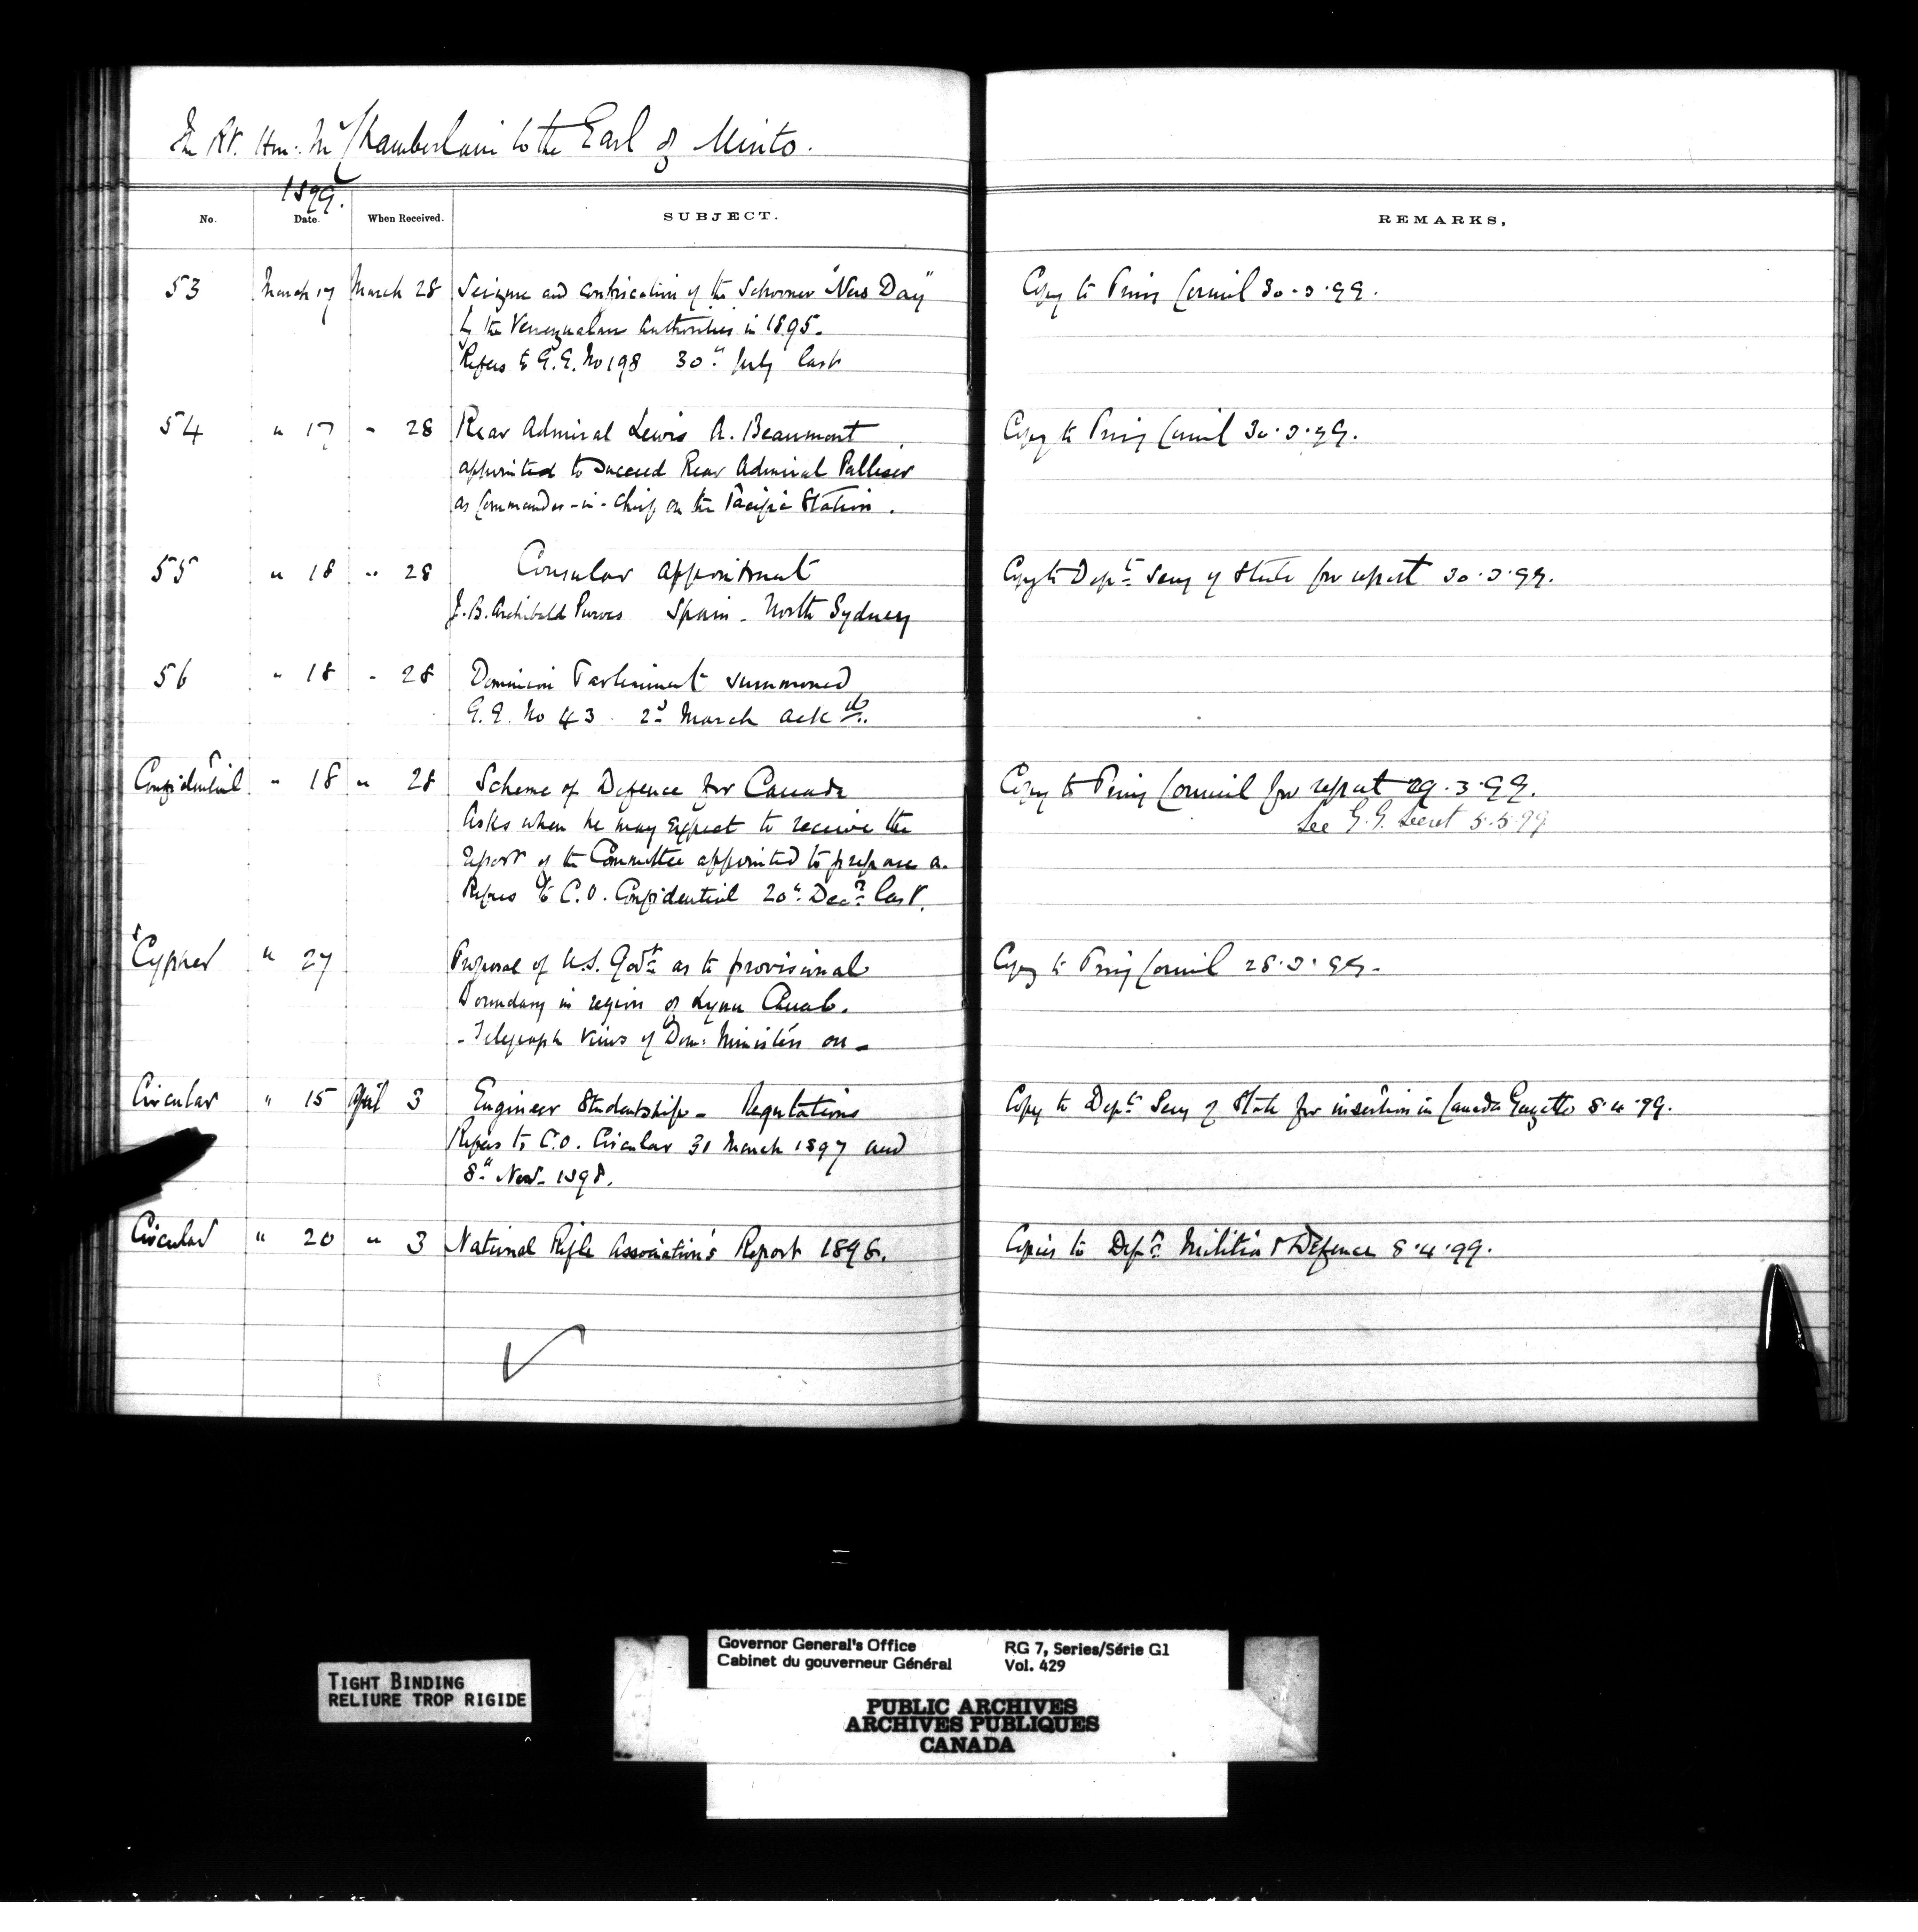 The Rt. Hon. Mr Chamberlain to the Earl of Minto.
1899.
No. Date. When Received. SUBJECT. REMARKS,
53 March 17 March 28 Seizure and confiscation of the Schooner "New Day" Copy to Privy Council 30.3.99.
by the Venezuelan Authorities in 1895.
Refers to G.G. No 198 30th July last
54 " 17 " 28 Rear Admiral Lewis A. Beaumont Copy to Privy Council 30.3.99.
appointed to succeed Rear Admiral Palliser
as Commander-in-Chief on the Pacific Station.
55 " 18 " 28 Consular appointment Copy to Dept Secy of State for report 30.3.99.
J.B. Archibald Purves Spain - North Sydney
56 " 18 " 28 Dominion Parliament summoned
G.G. No 43 2d March ackd.
Confidential " 18 " 28 Scheme of Defence for Canada Copy to Privy Council for report 29.3.99.
Asks when he may expect to receive the See G.G. Secret 5.5.99
report of the Committee appointed to prepare a.
Refers to C.O. Confidential 20th Decr last.
Cypher " 27 Proposal of U.S. Govt as to provisional Copy to Privy Council 28.3.99.
boundary in region of Lynn Canal.
- Telegraph views of Dom: Ministers on -
Circular " 15 April 3 Engineer Studentships - Regulations Copy to Dept Secy of State for insertion in Canada Gazette 8.4.99.
Refers to C.O. Circular 31 March 1897 and
8th Nov. 1898.
Circular " 20 " 3 National Rifle Association's Report 1898. Copies to Dept Militia & Defence 8.4.99.
Governor General's Office RG 7, Series/Série G1
Cabinet du gouverneur Général Vol. 429
TIGHT BINDING
RELIURE TROP RIGIDE
PUBLIC ARCHIVES
ARCHIVES PUBLIQUES
CANADA